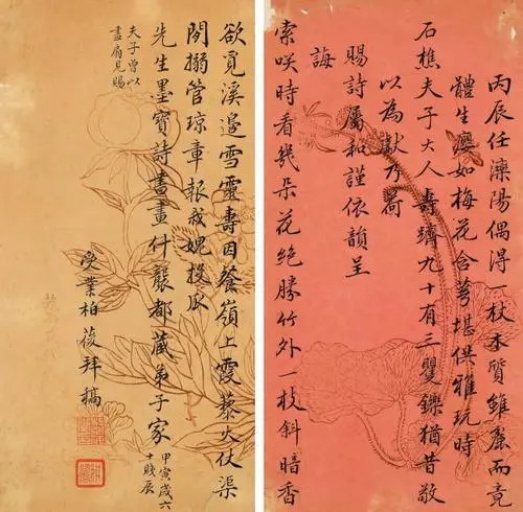 丙辰任灤陽偶得一杖木質雖麤而竟
體生癭如梅花含萼堪供雅玩時
石樵夫子大人壽躋九十有三矍鑠猶昔敬
以為獻乃荷
賜詩屬和謹依韻呈
誨
索咲時看幾朵花絕勝竹外一枝斜暗香
欲覓溪邊雪靈壽因餐嶺上霞藜火仗渠
閒搦管瓊章報我媿投瓜
先生墨寶詩書畫什襲都藏弟子家
甲寅歲六
十賤辰
夫子曾以
畫扇見賜
受業柏葰拜稿